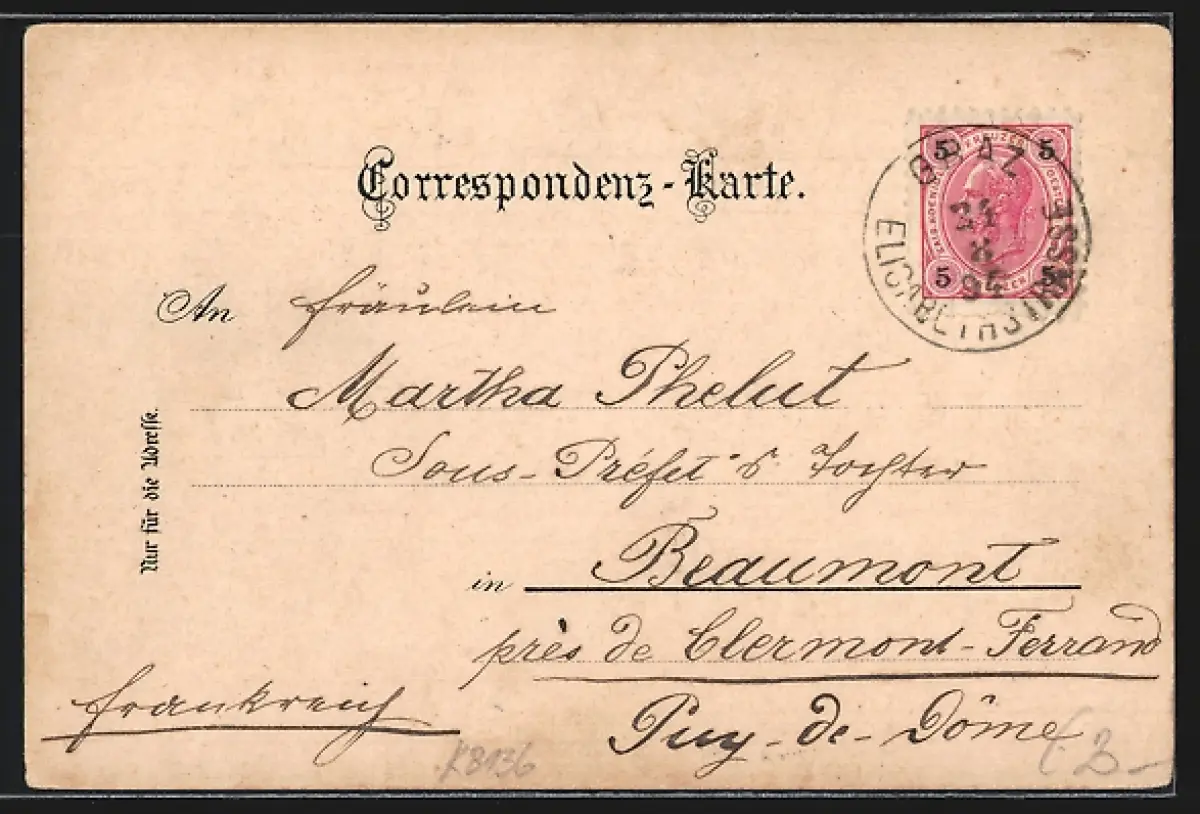 Correspondenz-Karte.
5 KREUZER 5
5 5
GRAZ
24
8
ELISABETHSTRASSE
An Fräulein
Martha Phelut
Sous-Préfet's Tochter
Nur für die Adresse.
in Beaumont
près de Clermont-Ferrand
Frankreich
Puy-de-Dôme
K8136